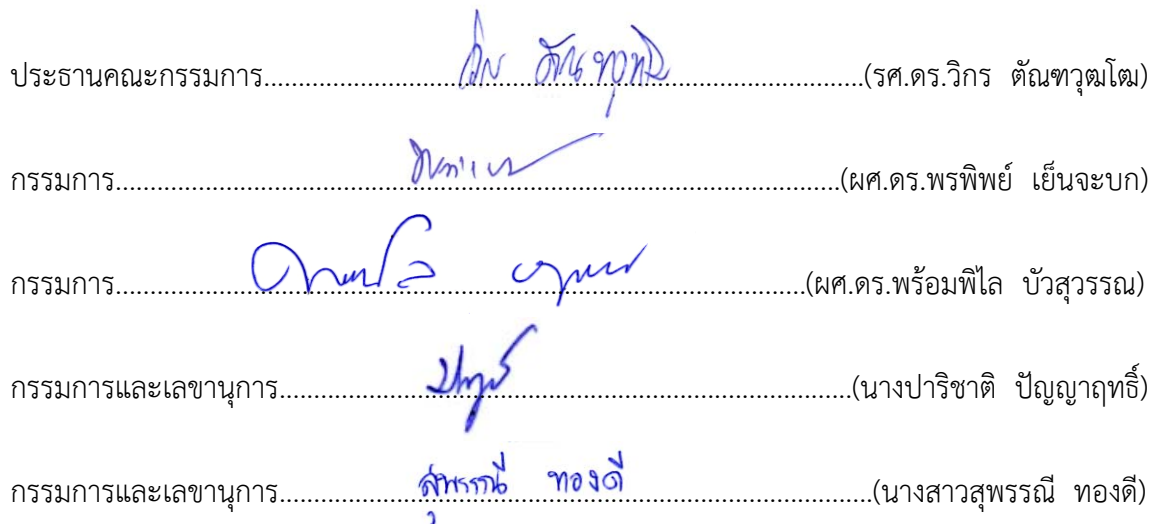 ประธานคณะกรรมการ.......................................................................................(รศ.ดร.วิกร ตัณฑวุฒโฒ)
กรรมการ.........................................................................................................(ผศ.ดร.พรพิพย์ เย็นจะบก)
กรรมการ....................................................................................................(ผศ.ดร.พร้อมพิไล บัวสุวรรณ)
กรรมการและเลขานุการ...................................................................................(นางปาริชาติ ปัญญาฤทธิ์)
กรรมการและเลขานุการ....................สุพรรณี ทองดี....................................(นางสาวสุพรรณี ทองดี)